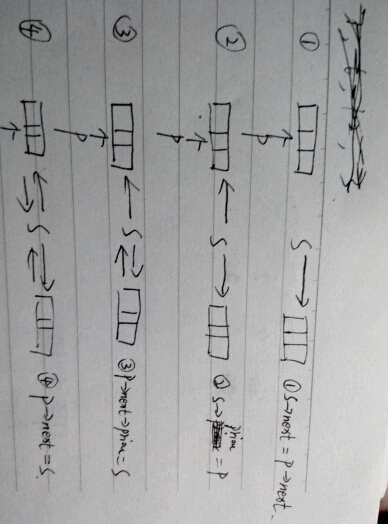 ① P S ① S→next = P→next.
② P S ② S→priou = P
③ P S ③ P→next→priou = S
④ S ④ P→next = S.